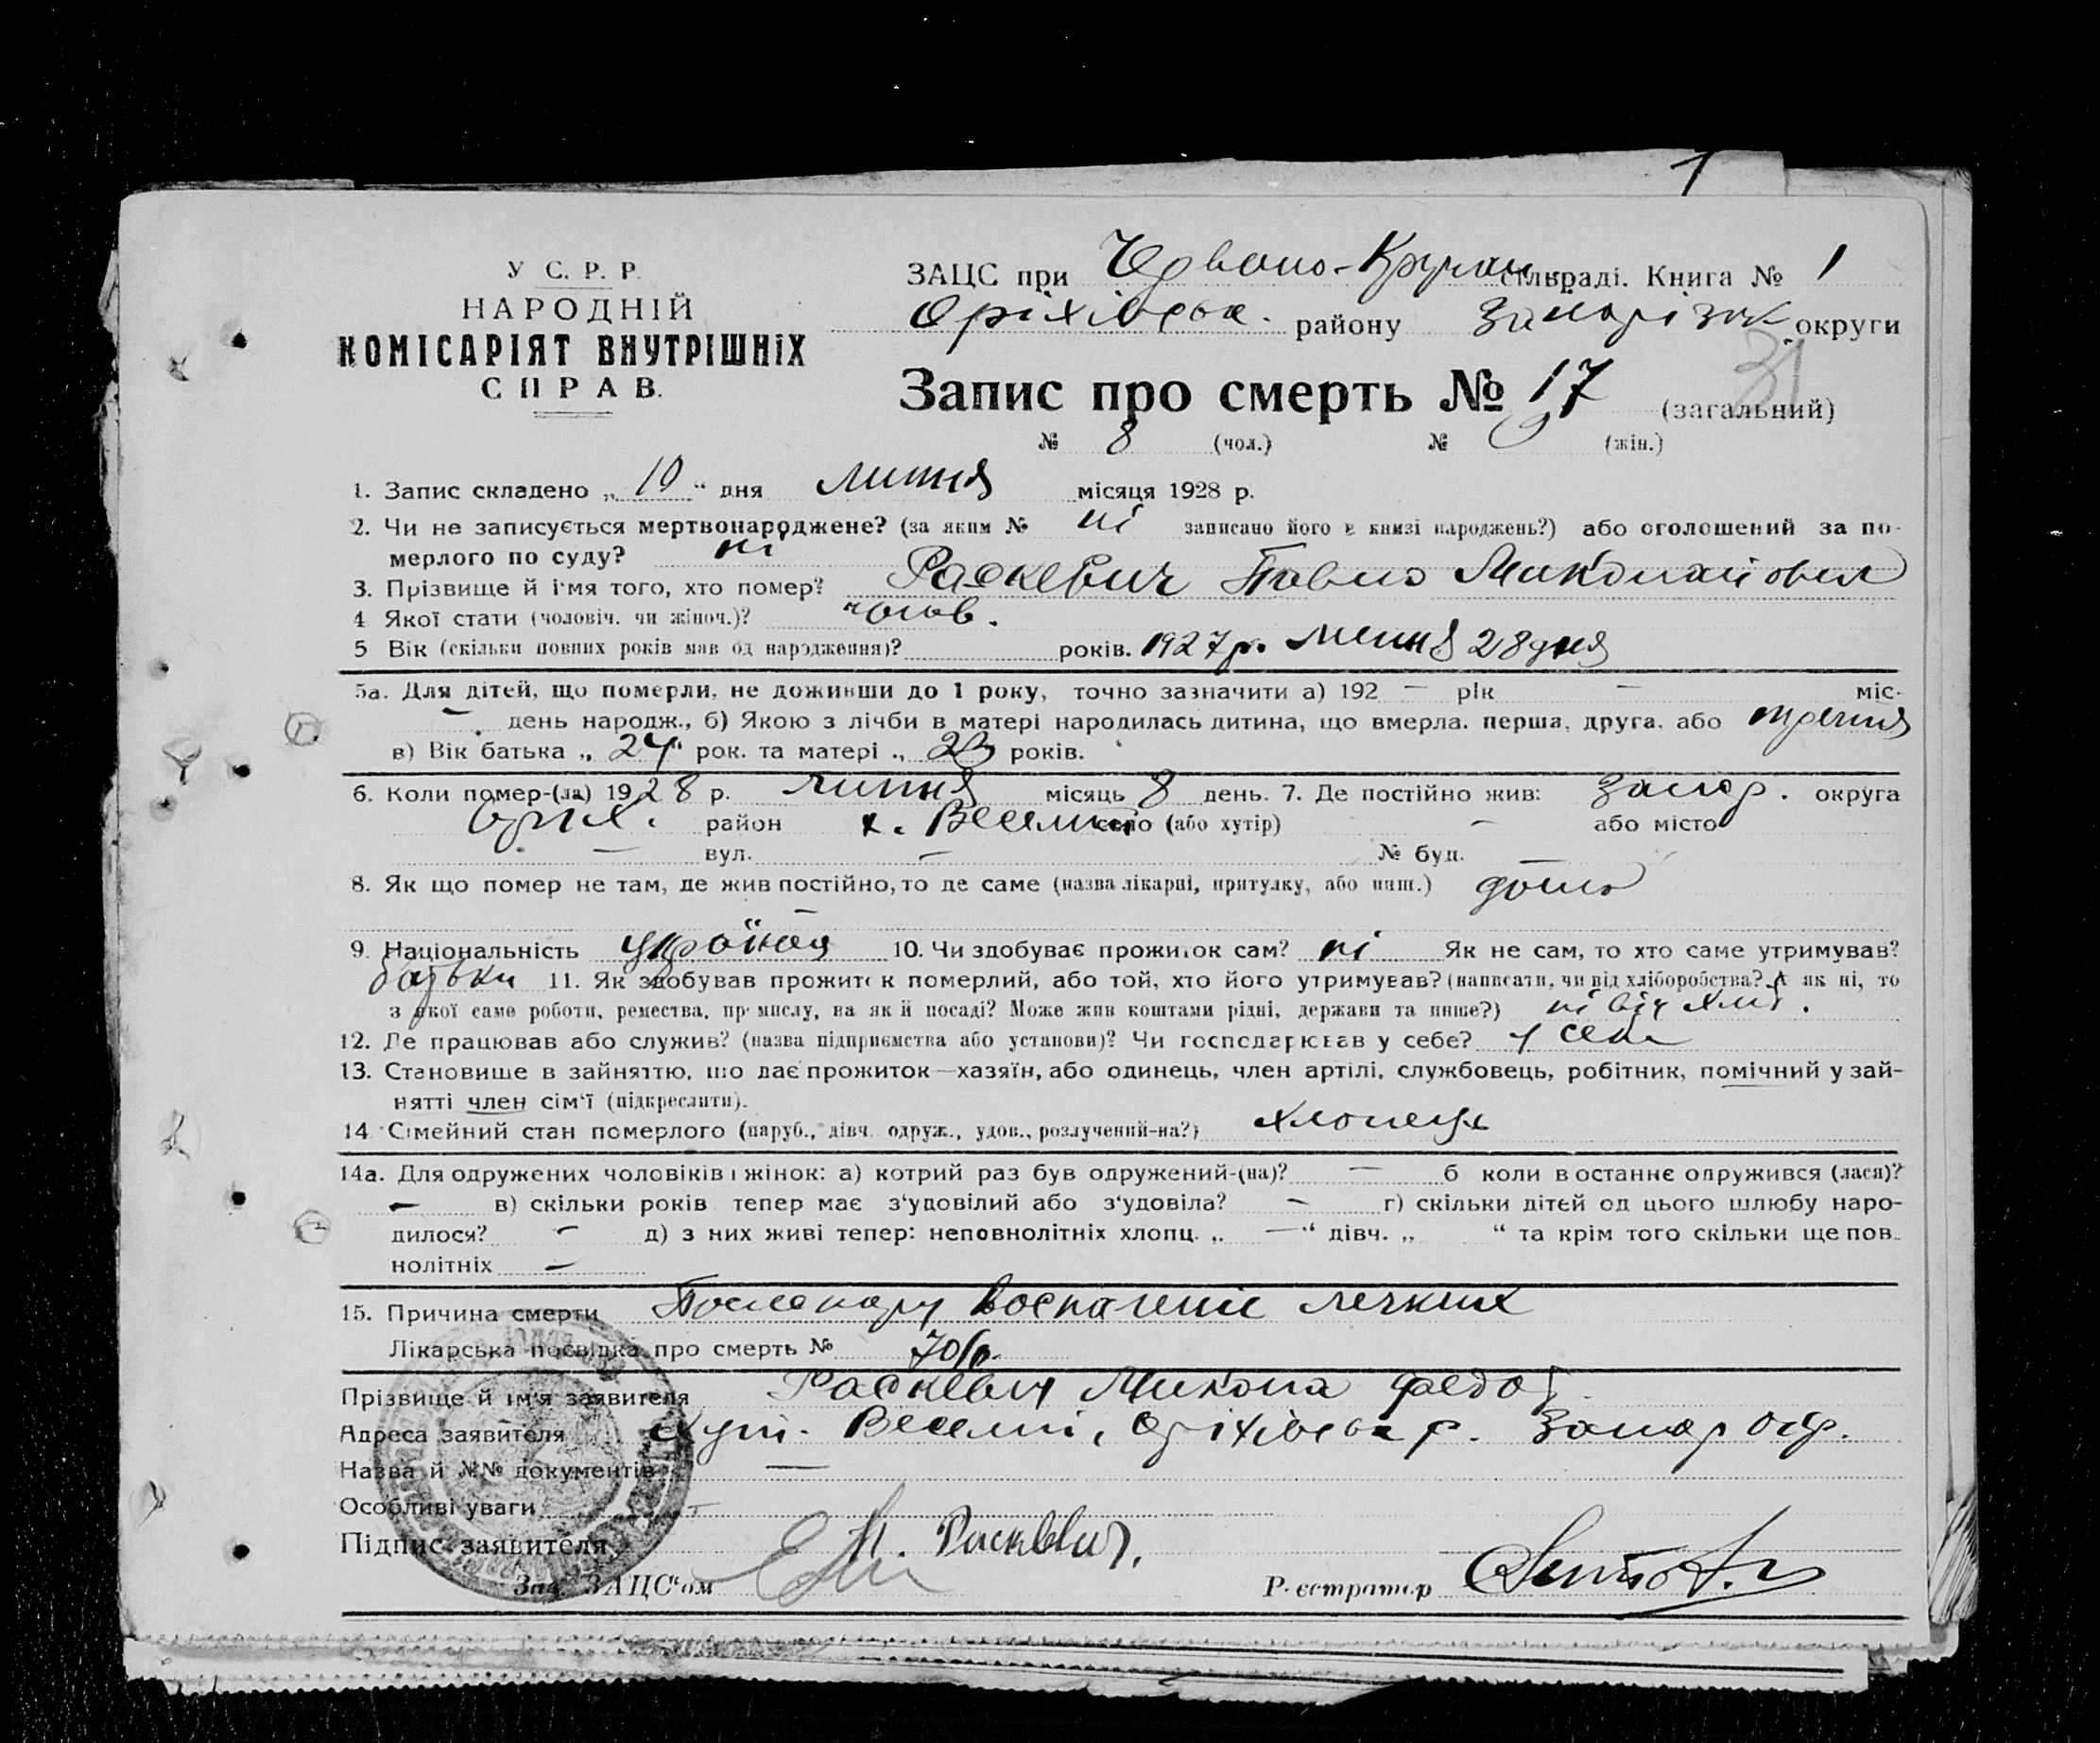 1
У С. Р. Р.
НАРОДНІЙ
КОМІСАРІЯТ ВНУТРІШНІХ
СПРАВ.
ЗАЦС при Червоно- сільраді. Книга № 1
Оріхівськ. району Запоріжж округи
31
Запис про смерть № 17 (загальний)
№ 8 (чол.) № (жін.)
1. Запис складено „ 10 “ дня липня місяця 1928 р.
2. Чи не записується мертвонароджене? (за яким № ні записано його в книзі народжень?) або оголошений за по-
мерлого по суду? ні
3. Прізвище й ім'я того, хто помер? Раскевич Павло Миколайович
4 Якої стати (чоловіч. чи жіноч.)? чолов.
5 Вік (скільки повних років мав од народження)? років. 1927 р. 28 дня
5а. Для дітей, що померли, не доживши до 1 року, точно зазначити а) 192 — рік — міс-
— день народж., б) Якою з лічби в матері народилась дитина, що вмерла. перша, друга, або третя
в) Вік батька „ 24 “ рок. та матері „ 23 років.
6. Коли помер-(ла) 1928 р. липня місяць 8 день. 7. Де постійно жив: Запор. округа
Оріх. район х. Веселий село (або хутір) — або місто
— вул. — № буд. —
8. Як що помер не там, де жив постійно, то де саме (назва лікарні, притулку, або инш.) дома
9. Національність 10. Чи здобуває прожиток сам? ні Як не сам, то хто саме утримував?
батьки 11. Як здобував прожиток померлий, або той, хто його утримував? (написати, чи від хліборобства? А як ні, то
з якої саме роботи, ремества, промислу, на якій посаді? Може жив коштами рідні, держави та инше?) ні від хліб.
12. Де працював або служив? (назва підприємства або установи)? Чи господарював у себе? у себе
13. Становише в зайняттю, що дає прожиток—хазяїн, або одинець, член артілі, службовець, робітник, помічний у зай-
нятті член сім'ї (підкреслити).
14 Сімейний стан померлого (паруб., дівч. одруж., удов., розлучений-на?) хлопець
14а. Для одружених чоловіків і жінок: а) котрий раз був одружений-(на)? — б коли востаннє одружився (лася)?
— в) скільки років тепер має з'удовілий або з'удовіла? — г) скільки дітей од цього шлюбу наро-
дилося? — д) з них живі тепер: неповнолітніх хлопц. „ — “ дівч. „ “ та крім того скільки ще пов-
нолітніх —
15. Причина смерти воспаленіе легких
Лікарська посвідка про смерть №
Прізвище й ім'я заявителя Раскевич Микола Федор
Адреса заявителя Хут. Веселий, Оріхівськ р. Запор окр.
Назва й №№ документів —
Особливі уваги —
Підпис заявителя Н. Раскевич.
Зав. ЗАЦС'ом
Реєстратор